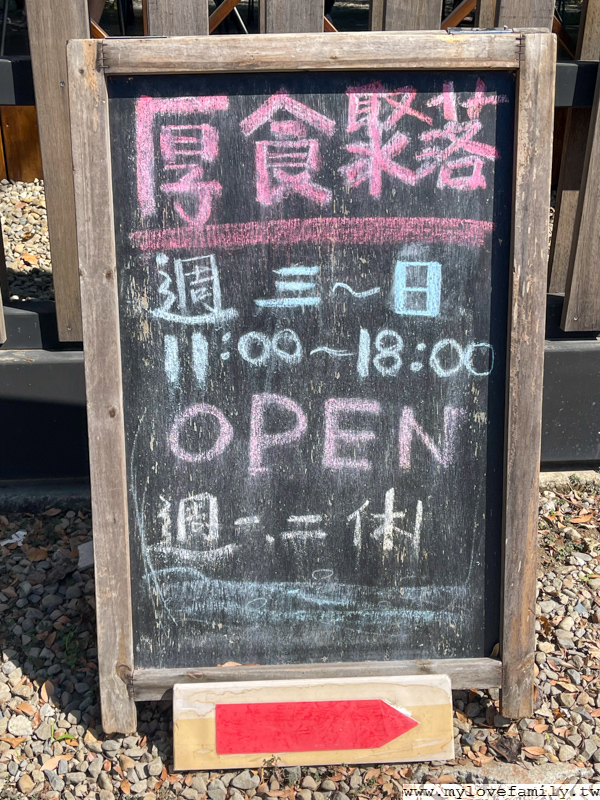 厚食聚落
週三~日
11:00~18:00
OPEN
週一、二休
www.mylovefamily.tw